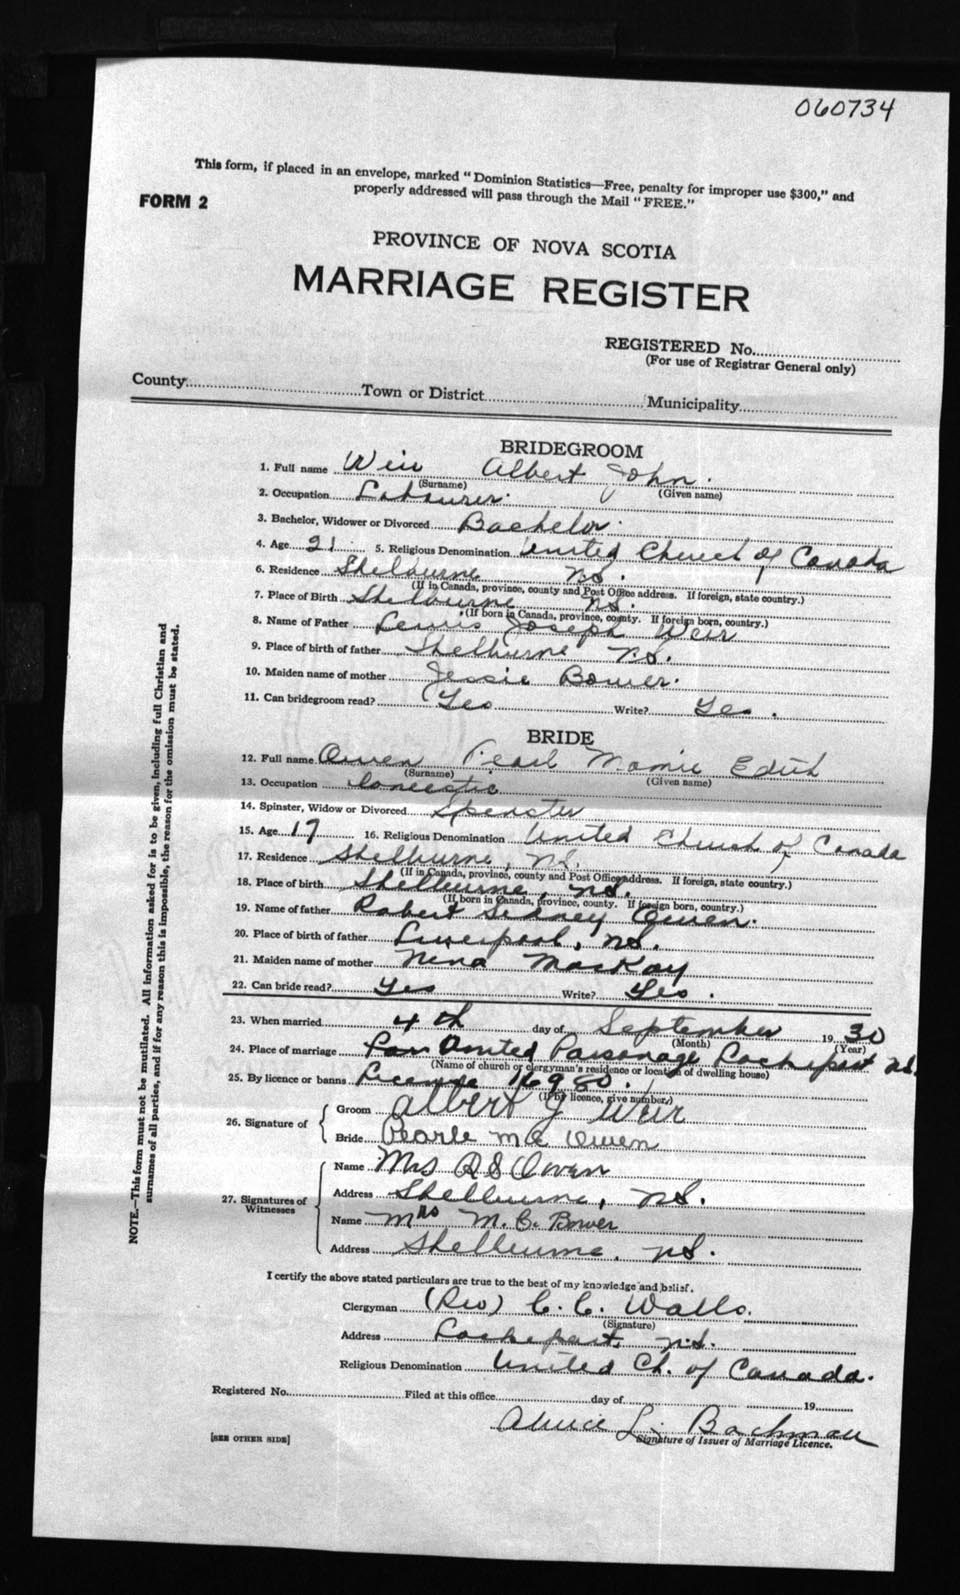 060734
This form, if placed in an envelope, marked "Dominion Statistics—Free, penalty for improper use $300," and
properly addressed will pass through the Mail "FREE."
FORM 2
PROVINCE OF NOVA SCOTIA
MARRIAGE REGISTER
REGISTERED No.
(For use of Registrar General only)
County Town or District Municipality
BRIDEGROOM
1. Full name Weir Albert John.
(Surname) (Given name)
2. Occupation Labourer.
3. Bachelor, Widower or Divorced Bachelor.
4. Age 21 5. Religious Denomination United Church of Canada
6. Residence Shelburne N.S.
(If in Canada, province, county and Post Office address. If foreign, state country.)
7. Place of Birth Shelburne N.S.
(If born in Canada, province, county. If foreign born, country.)
8. Name of Father Lewis Joseph Weir
9. Place of birth of father Shelburne N.S.
10. Maiden name of mother Jessie Bower.
11. Can bridegroom read? Yes Write? Yes.
BRIDE
12. Full name Owen Pearl Mamie Edith
(Surname) (Given name)
13. Occupation Domestic
14. Spinster, Widow or Divorced Spinster
15. Age 17 16. Religious Denomination United Church of Canada
17. Residence Shelburne, N.S.
(If in Canada, province, county and Post Office address. If foreign, state country.)
18. Place of birth Shelburne, N.S.
(If born in Canada, province, county. If foreign born, country.)
19. Name of father Robert Sidney Owen.
20. Place of birth of father Liverpool, N.S.
21. Maiden name of mother Nina MacKay
22. Can bride read? Yes Write? Yes.
23. When married 4th day of September 1930
(Month) (Year)
24. Place of marriage United Parsonage Lockeport N.S.
(Name of church or clergyman's residence or location of dwelling house)
25. By licence or banns License 16980.
(If by licence, give number.)
26. Signature of
Groom Albert J Weir
Bride Pearle M E Owen
27. Signatures of Witnesses
Name Mrs R S Owen
Address Shelburne, N.S.
Name Mrs M. C. Bower
Address Shelburne, N.S.
I certify the above stated particulars are true to the best of my knowledge and belief.
Clergyman (Rev) C. C. Walls.
(Signature)
Address Lockeport, N.S.
Religious Denomination United Ch. of Canada.
Registered No. Filed at this office day of 19
L. Bachman
Signature of Issuer of Marriage Licence.
[SEE OTHER SIDE]
NOTE.—This form must not be mutilated. All information asked for is to be given, including full Christian and
surnames of all parties, and if for any reason this is impossible, the reason for the omission must be stated.